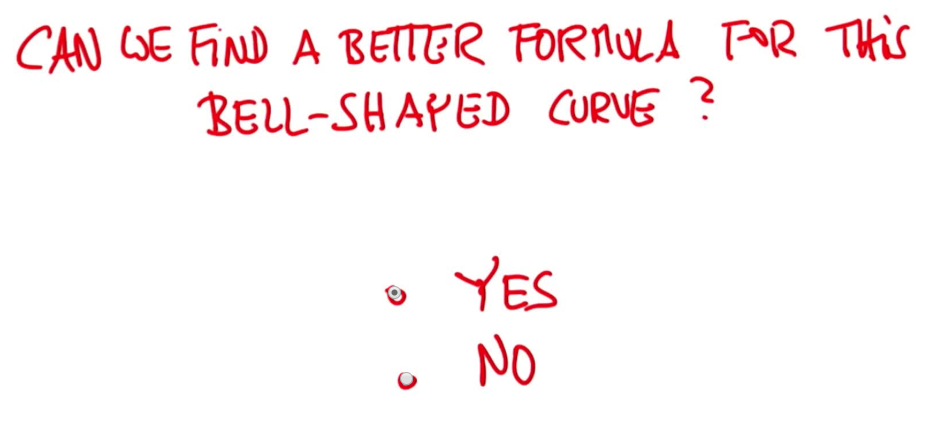 CAN WE FIND A BETTER FORMULA FOR THiS
BELL-SHAPED CURVE ?
YES
NO